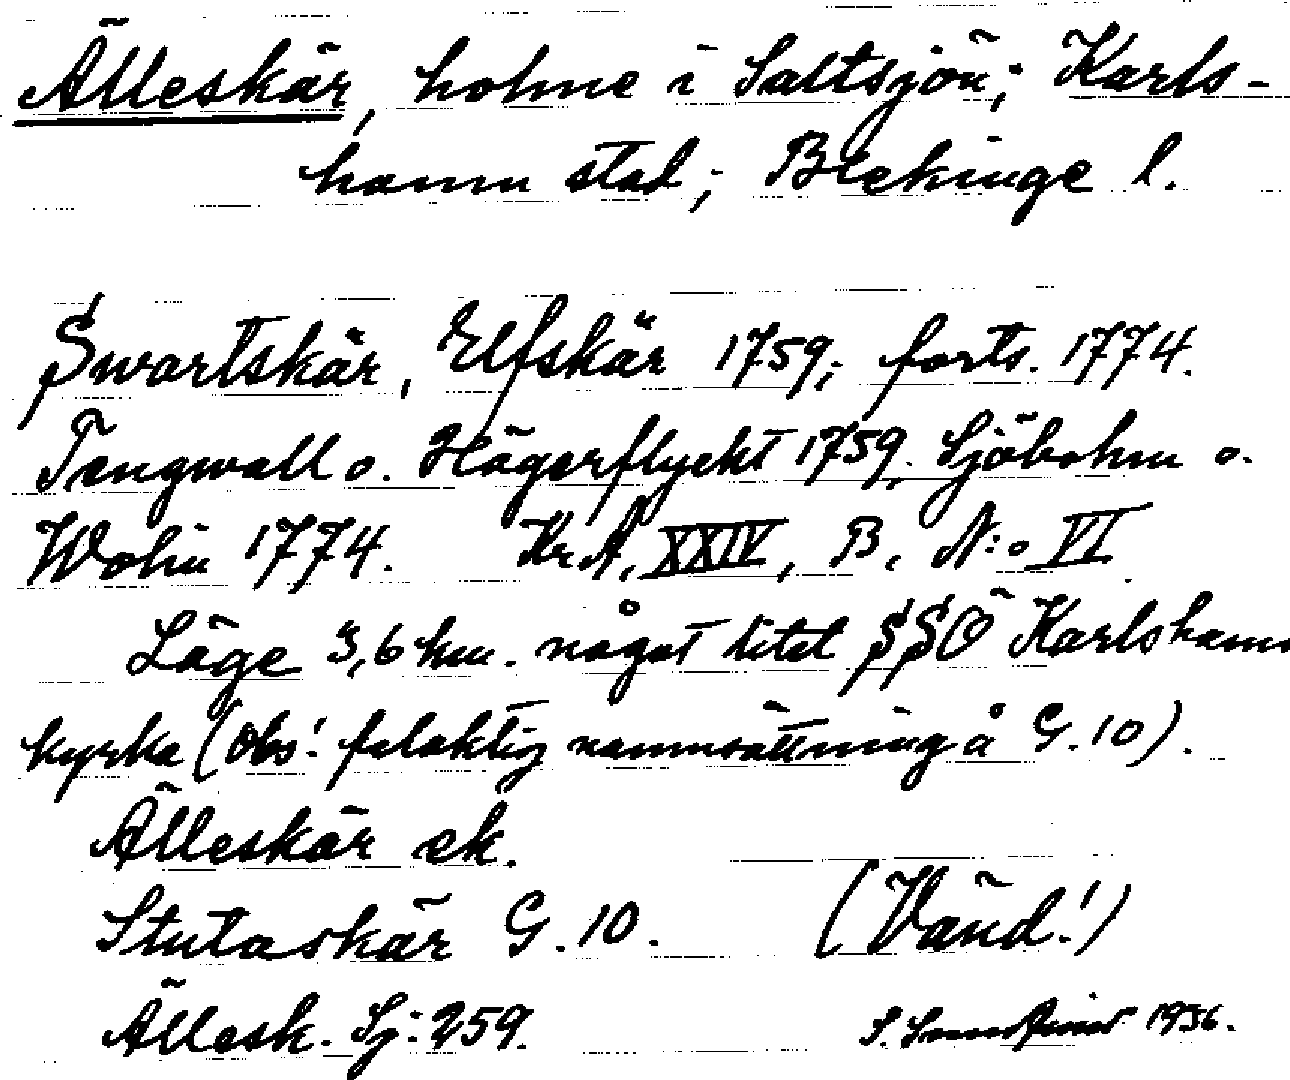 Älleskär, holme i Saltsjön; Karls-
hamn stad; Blekinge l.
Swartskär, Elfskär 1759; forts. 1774.
Tengwall o. Hägerflyckt 1759, Sjöbohm o.
Wohn 1774. Kr.A. XXIV, B, N:o VI
Läge 3,6 km. något litet SSÖ Karlshamns
kyrka (Obs! felaktig namnsättning å G. 10).
Älleskär ek.
Stutaskär G. 10. (Vänd!)
Ällesk. Sj: 259. S. 1936.